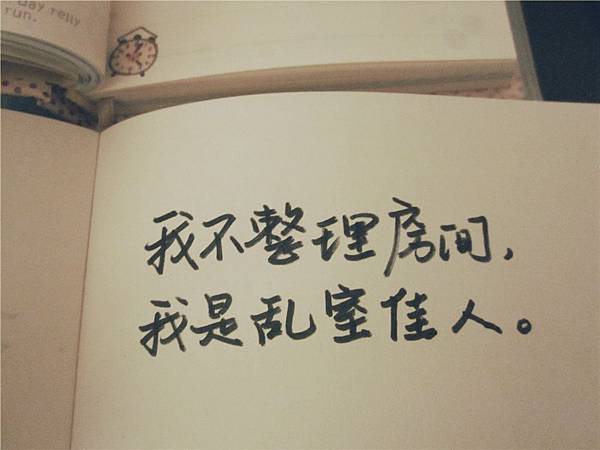 day relly
run.
我不整理房间,
我是乱室佳人。